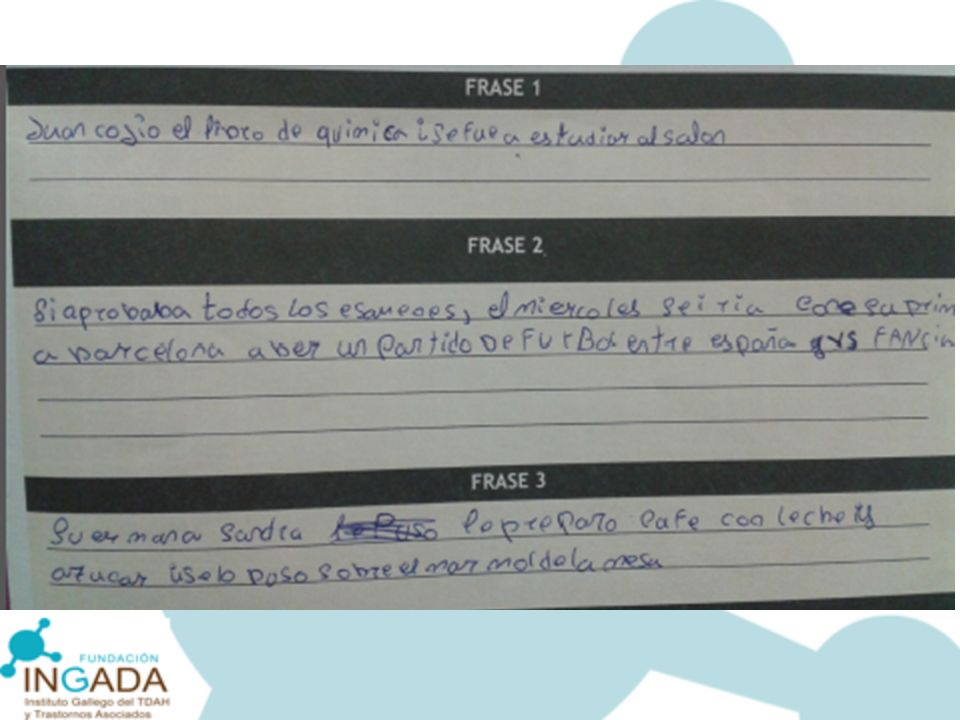 FRASE 1
Juan cogio el de quimica i se fue a estudiar al salon
FRASE 2
Si aprobaba todos los esameoes, el miercoles se i ria con su prim
a barcelona a ber un partido DE FUtBol entre españa
FRASE 3
Su er mana Sandra le preparo cafe con leche
azucar i se lo puso sobre el mar mol de la mesa
FUNDACIÓN
INGADA
Instituto Gallego del TDAH
y Trastornos Asociados